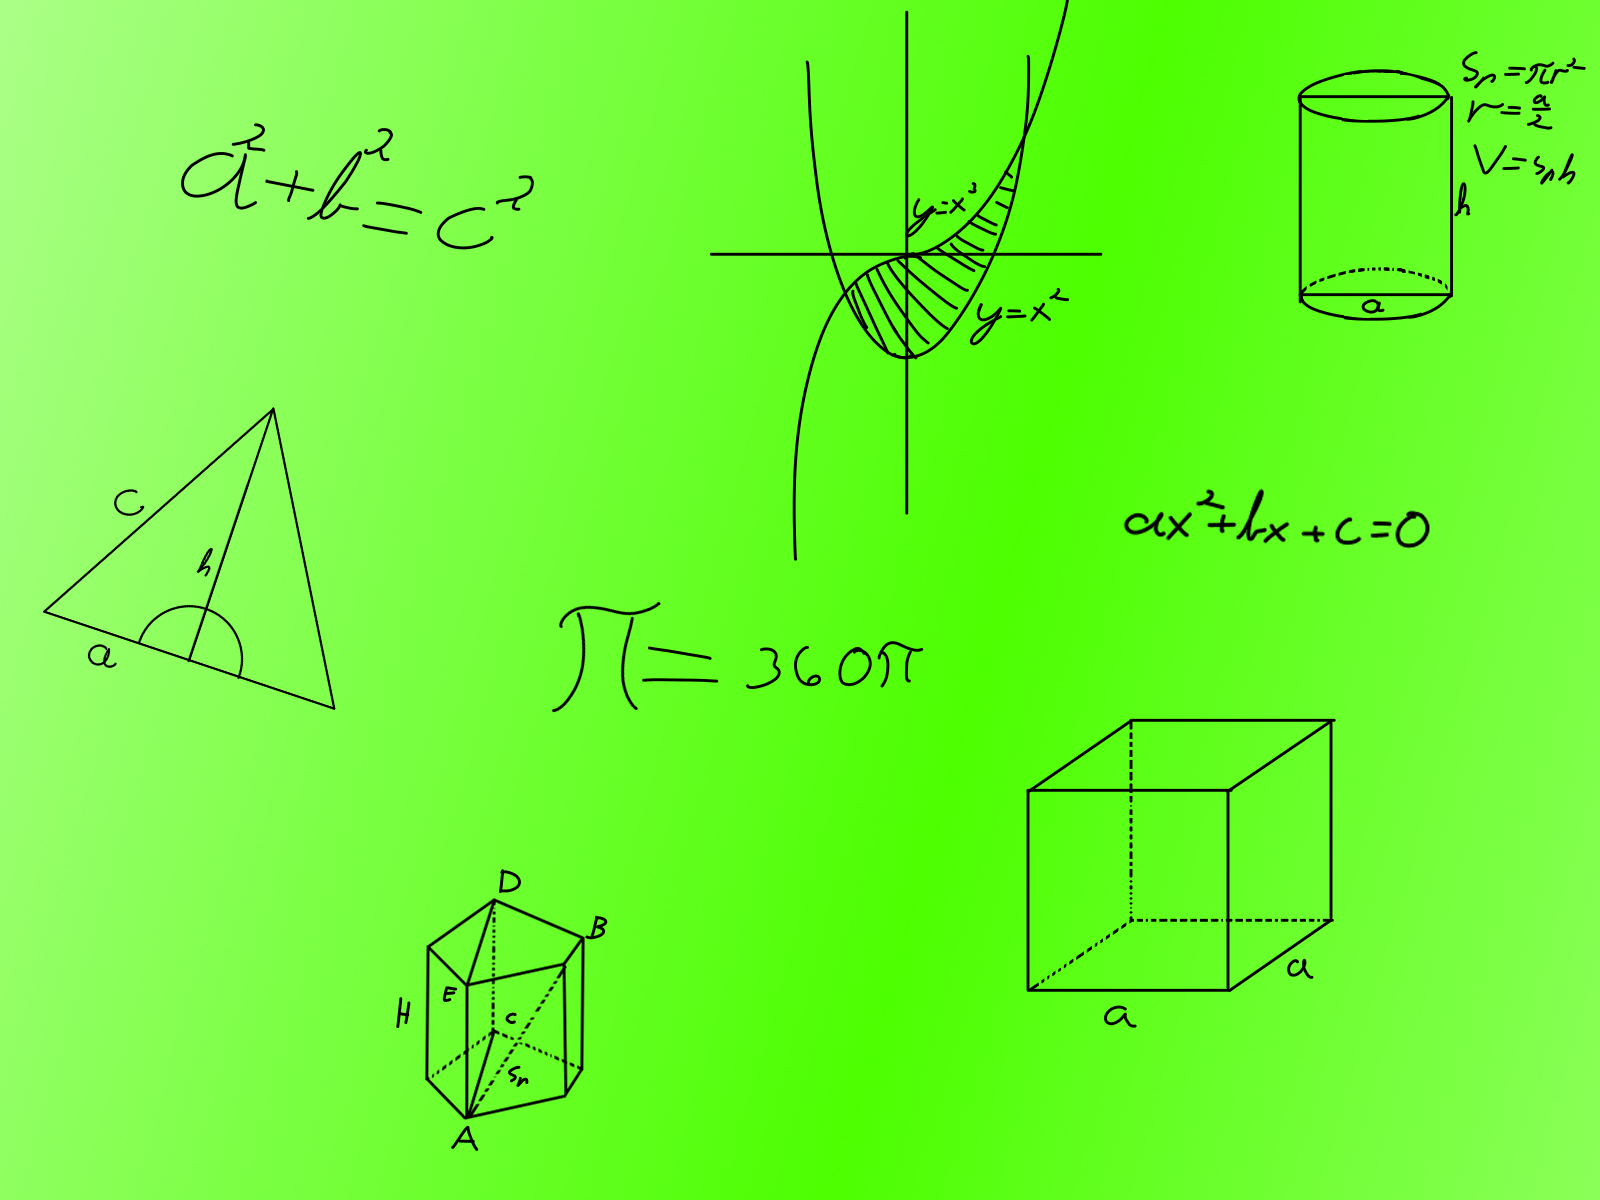 a²+b²=c²
y=x³
y=x²
Sₙ=πr²
r=a/2
V=Sₙh
h
a
c
h
a
ax²+bx+c=0
π=360π
D
B
E
H
c
Sₙ
A
a
a